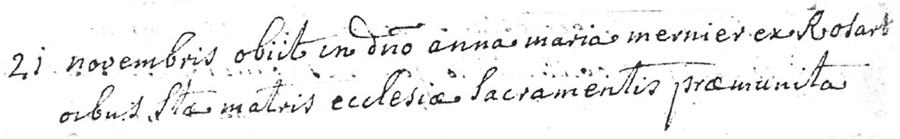 21 novembris obiit in dno anna maria mernier ex Rosart
oibus Stæ matris ecclesiæ Sacramentis præmunita